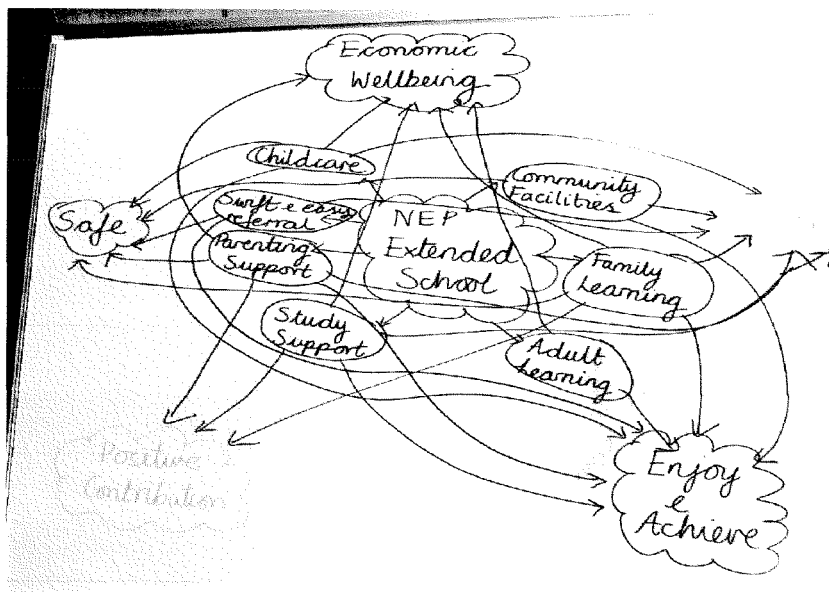 Economic
Wellbeing
Childcare
Community
Facilities
Swift e easy
referral
Safe
NEP
Extended
School
Parenting
Support
Family
Learning
Study
Support
Adult
Learning
Positive
Contribution
Enjoy
e
Achieve